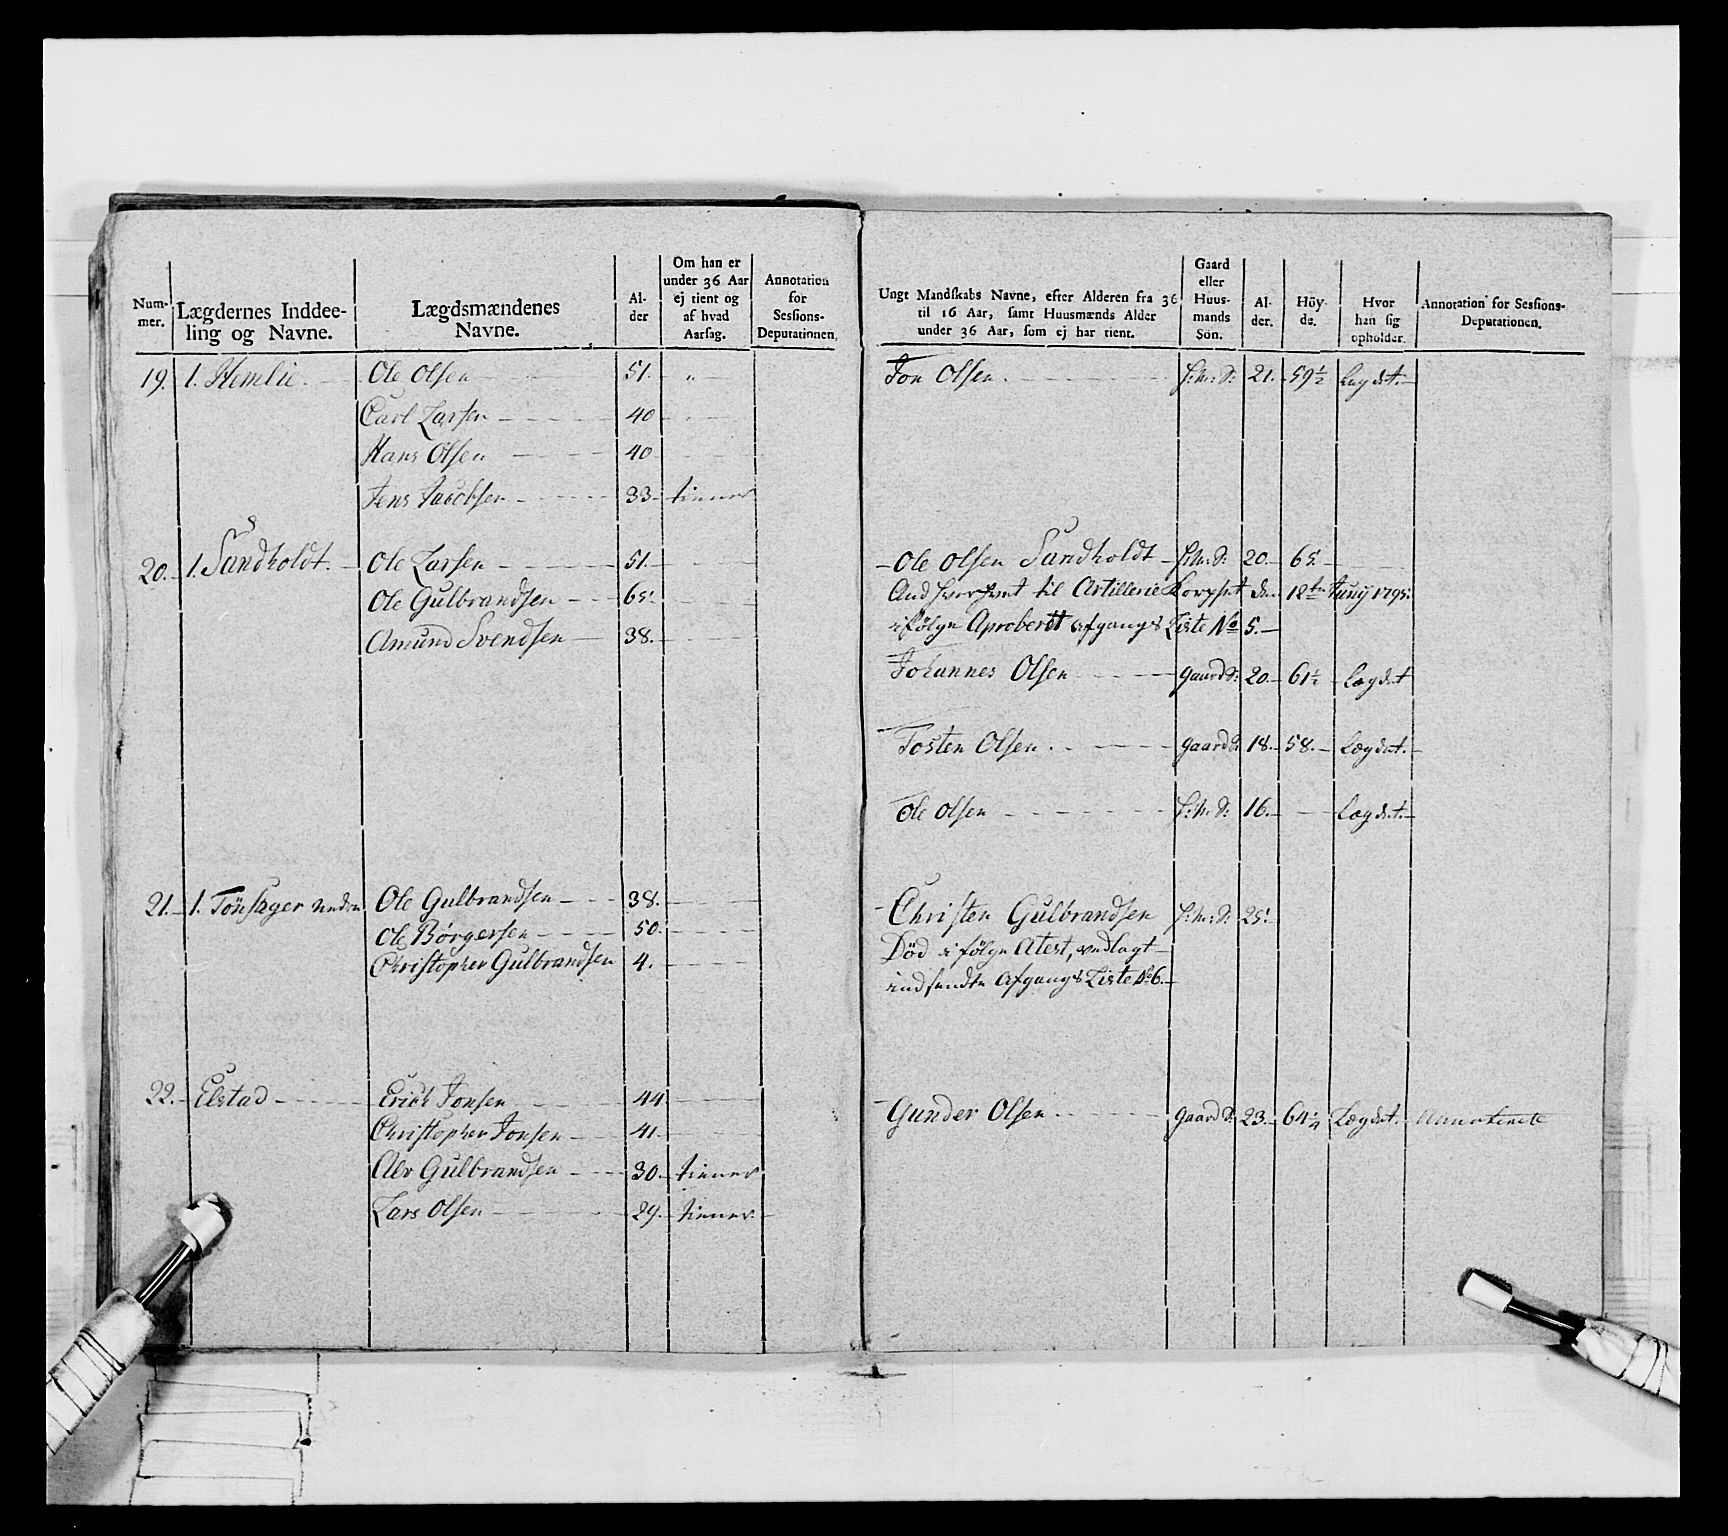 Num-
mer.
Lægdernes Inddee-
ling og Navne.
Lægdsmændenes
Navne.
Al-
der
Om han er
under 36 Aar
ej tient og
af hvad
Aarsag.
Annotation
for
Sessions-
Deputationen.
19. 1. Hemlie. Ole Olsen 51. "
Carl Larsen 40
Hans Olsen 40
Jens Jacobsen 33. tiener
20. 1. Sandholdt. Ole Larsen 51.
Ole Gulbrandsen 65.
Amund Svendsen 38.
21. 1. Tönsager neden Ole Gulbrandsen 38.
Ole Börgersen 50.
Christopher Gulbrandsen 4.
22. Elstad Erich Jonsen 44
Christopher Jonsen 41.
Gulbrandsen 30. tiener
Lars Olsen 29. tiener
Ungt Mandskabs Navne, efter Alderen fra 36
til 16 Aar, samt Huusmænds Alder
under 36 Aar, som ej har tient.
Gaard
eller
Huus-
mands
Sön.
Al-
der.
Höy-
de.
Hvor
han sig
opholder.
Annotation for Sessions-
Deputationen.
Jon Olsen. H:m: S: 21. 59 1/2 Lægdet.
Ole Olsen Sandholdt H:m: S: 20. 65.
til Artillerie Korpset den 12te Junij 1795.
ifölge Aproberet Afgangs Liste No 5.
Johannes Olsen Gaard S: 20. 61 1/2 Lægdet
Tosten Olsen. Gaard S: 18. 58. Lægdet.
Ole Olsen H:m: S: 16. Lægdet.
Christen Gulbrandsen H:m: S: 25.
Död ifölge Atest, vedlagt
indsendte Afgangs Liste No 6.
Gunder Olsen Gaard S: 23. 64 1/4 Lægdet. Annoterete